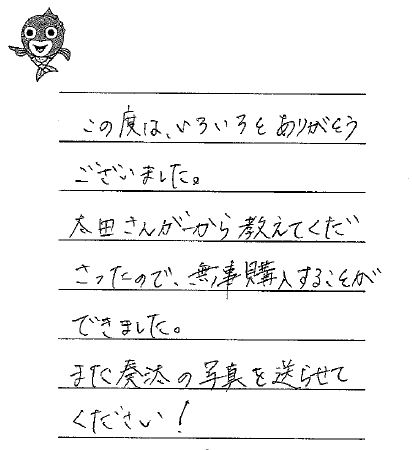 この度は、いろいろとありがとう
ございました。
太田さんが一から教えてくだ
さったので、無事購入することが
できました。
また奏汰の写真を送らせて
ください!